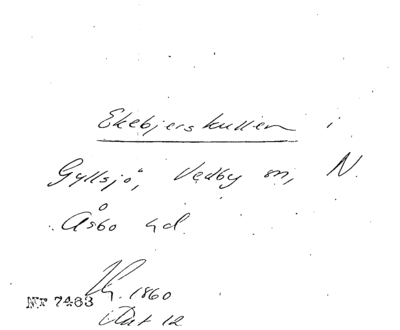 Ekebjerskullen i
Gyllsjö, Vedby sn, N.
Åsbo hd.
Uy. 1860
NF 7463
Art 12